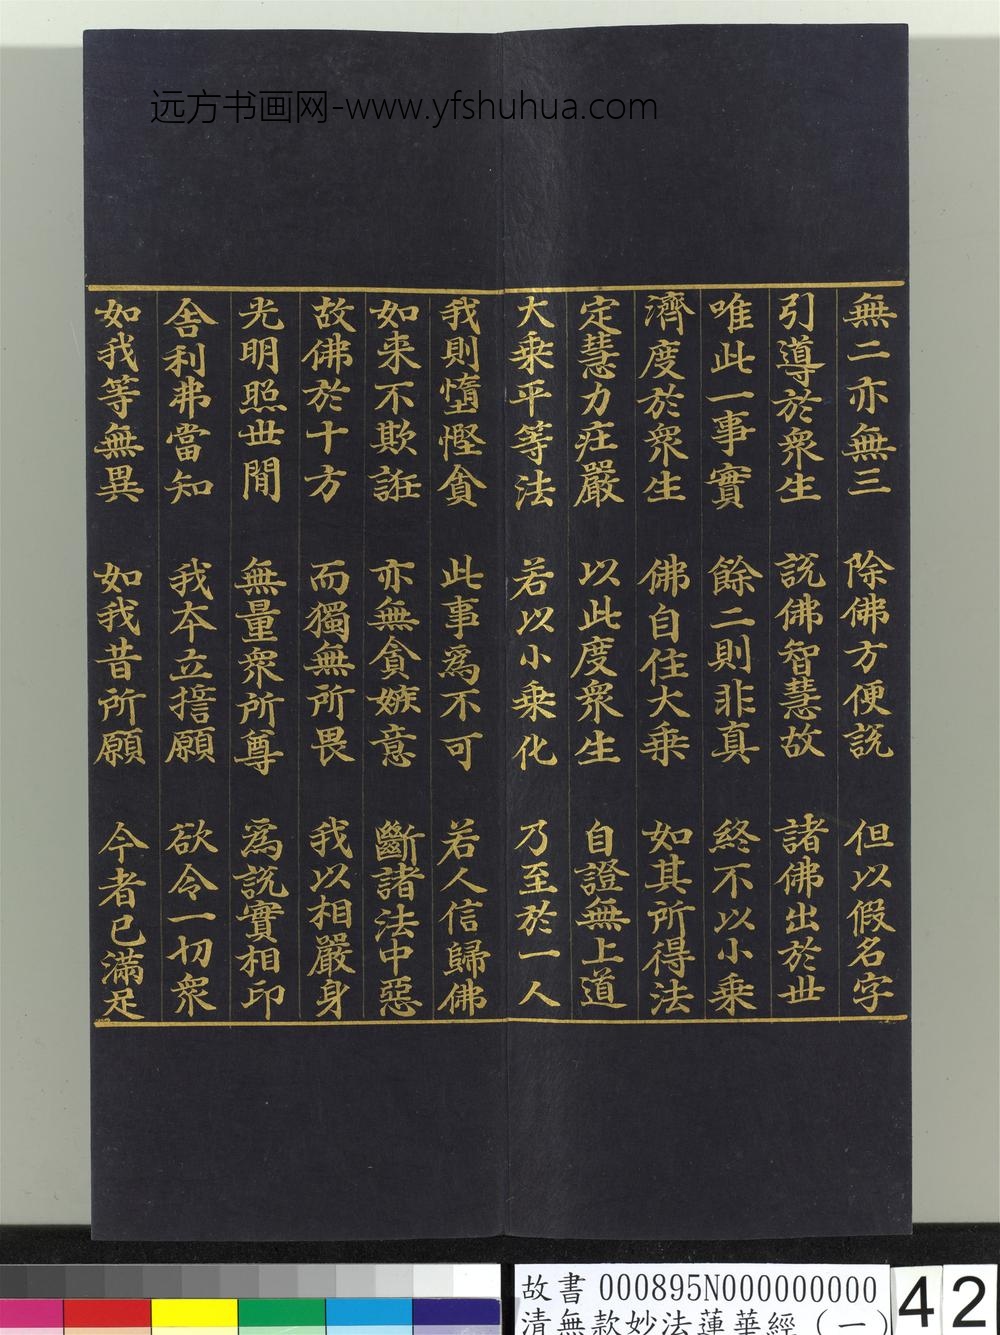 远方书画网-www.yfshuhua.com
無二亦無三 除佛方便說 但以假名字
引導於衆生 說佛智慧故 諸佛出於世
唯此一事實 餘二則非真 終不以小乘
濟度於衆生 佛自住大乘 如其所得法
定慧力莊嚴 以此度衆生 自證無上道
大乘平等法 若以小乘化 乃至於一人
我則墮慳貪 此事爲不可 若人信歸佛
如来不欺誑 亦無貪嫉意 斷諸法中惡
故佛於十方 而獨無所畏 我以相嚴身
光明照世間 無量衆所尊 爲說實相印
舍利弗當知 我本立誓願 欲令一切衆
如我等無異 如我昔所願 今者已滿足
故書 000895N000000000
清無款妙法蓮華經（一）
42